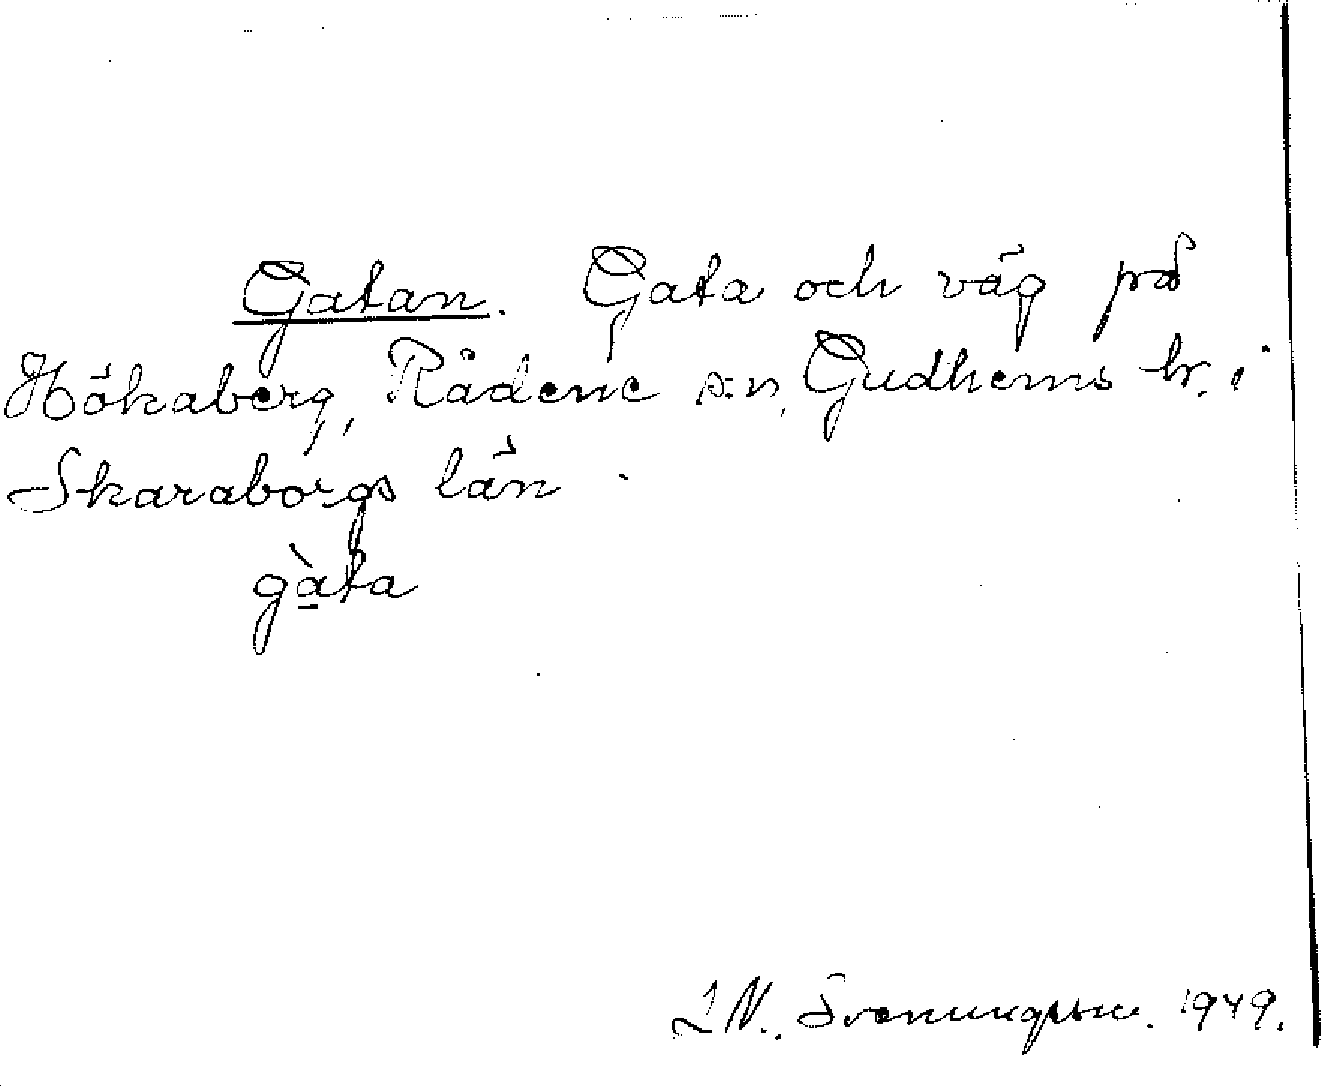 Gatan. Gata och väg på
Hökaberg, Rådene s:n, Gudhems hr. i
Skaraborgs län.
gàta
I N. Svenungsson. 1949.